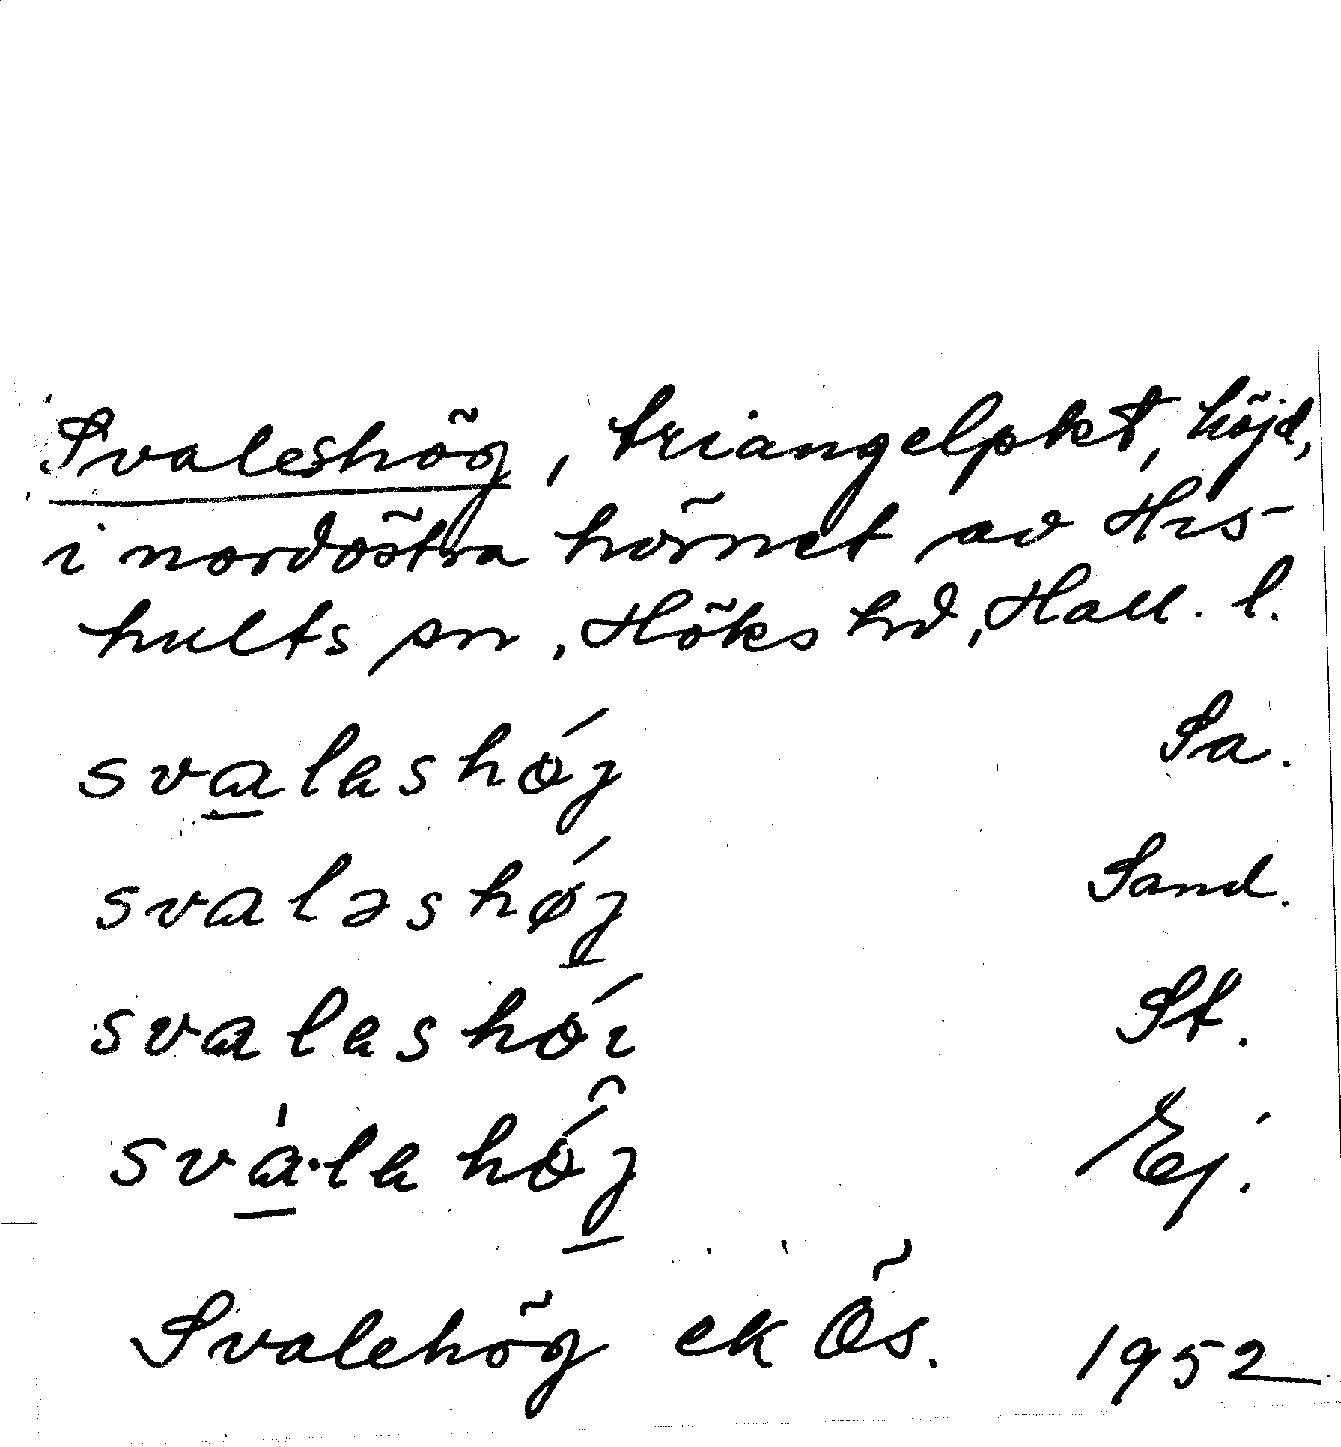 Svaleshög, triangelpkt, höjd,
i nordöstra hörnet av His-
hults sn, Höks hd, Hall. l.
svalashǿj Sa.
svaləshǿj Sand.
svalashǿi St.
sva·lahǿj Ej.
Svalehög ek Ös. 1952